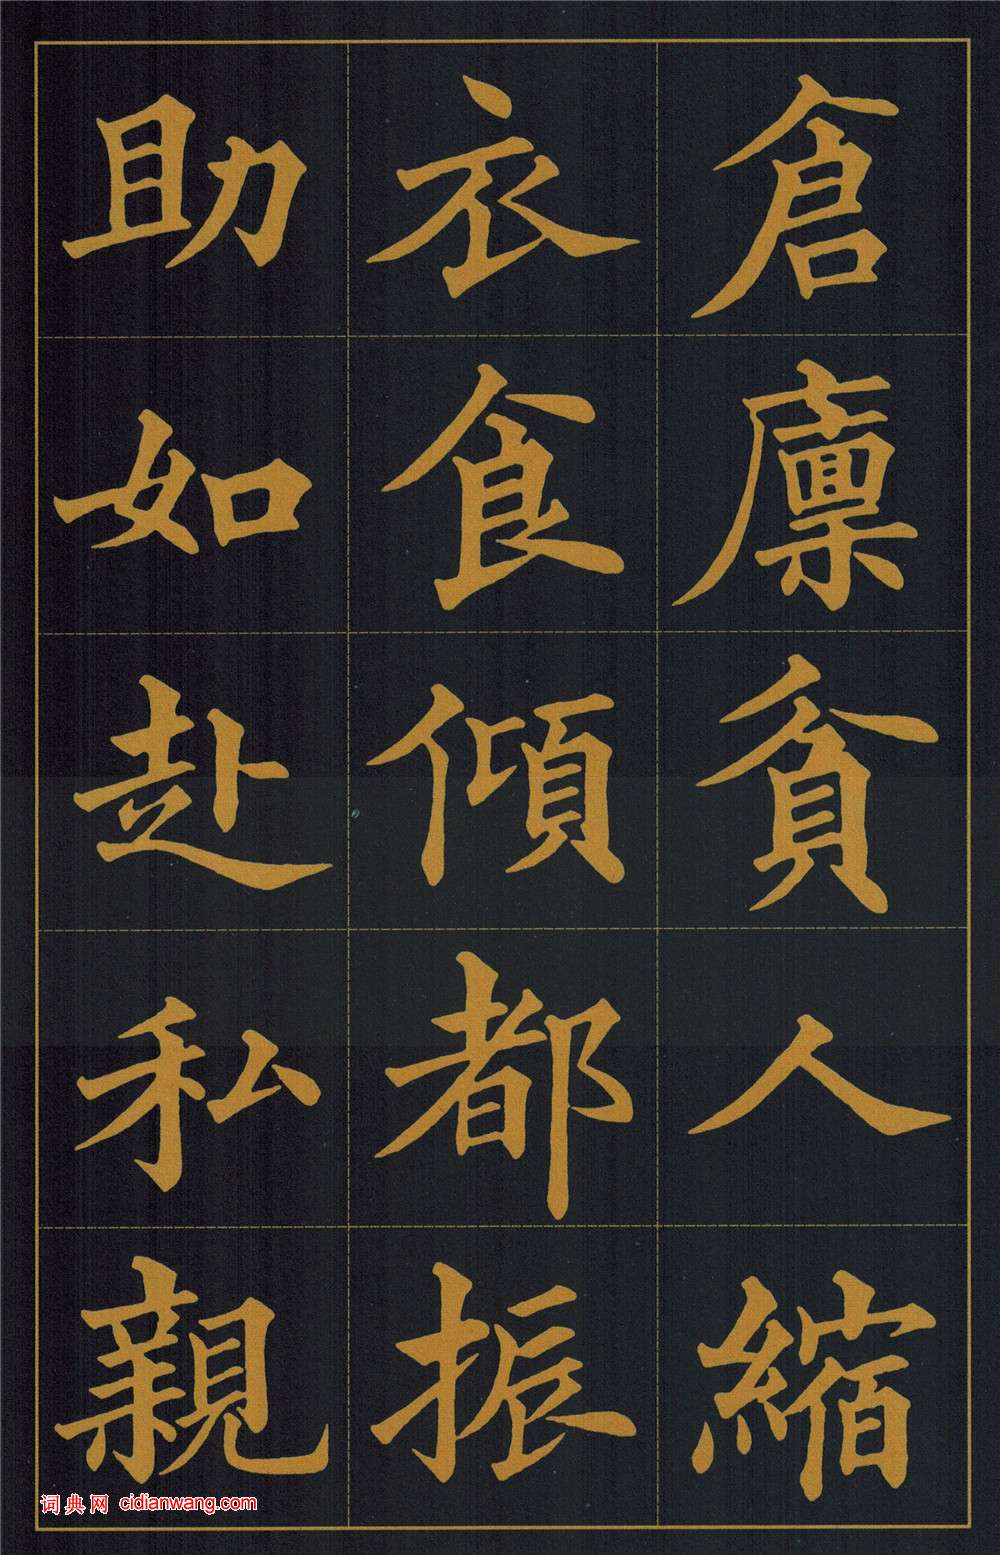 倉廪貧人縮
衣食傾都振
助如赴私親
词典网 cidianwang.com